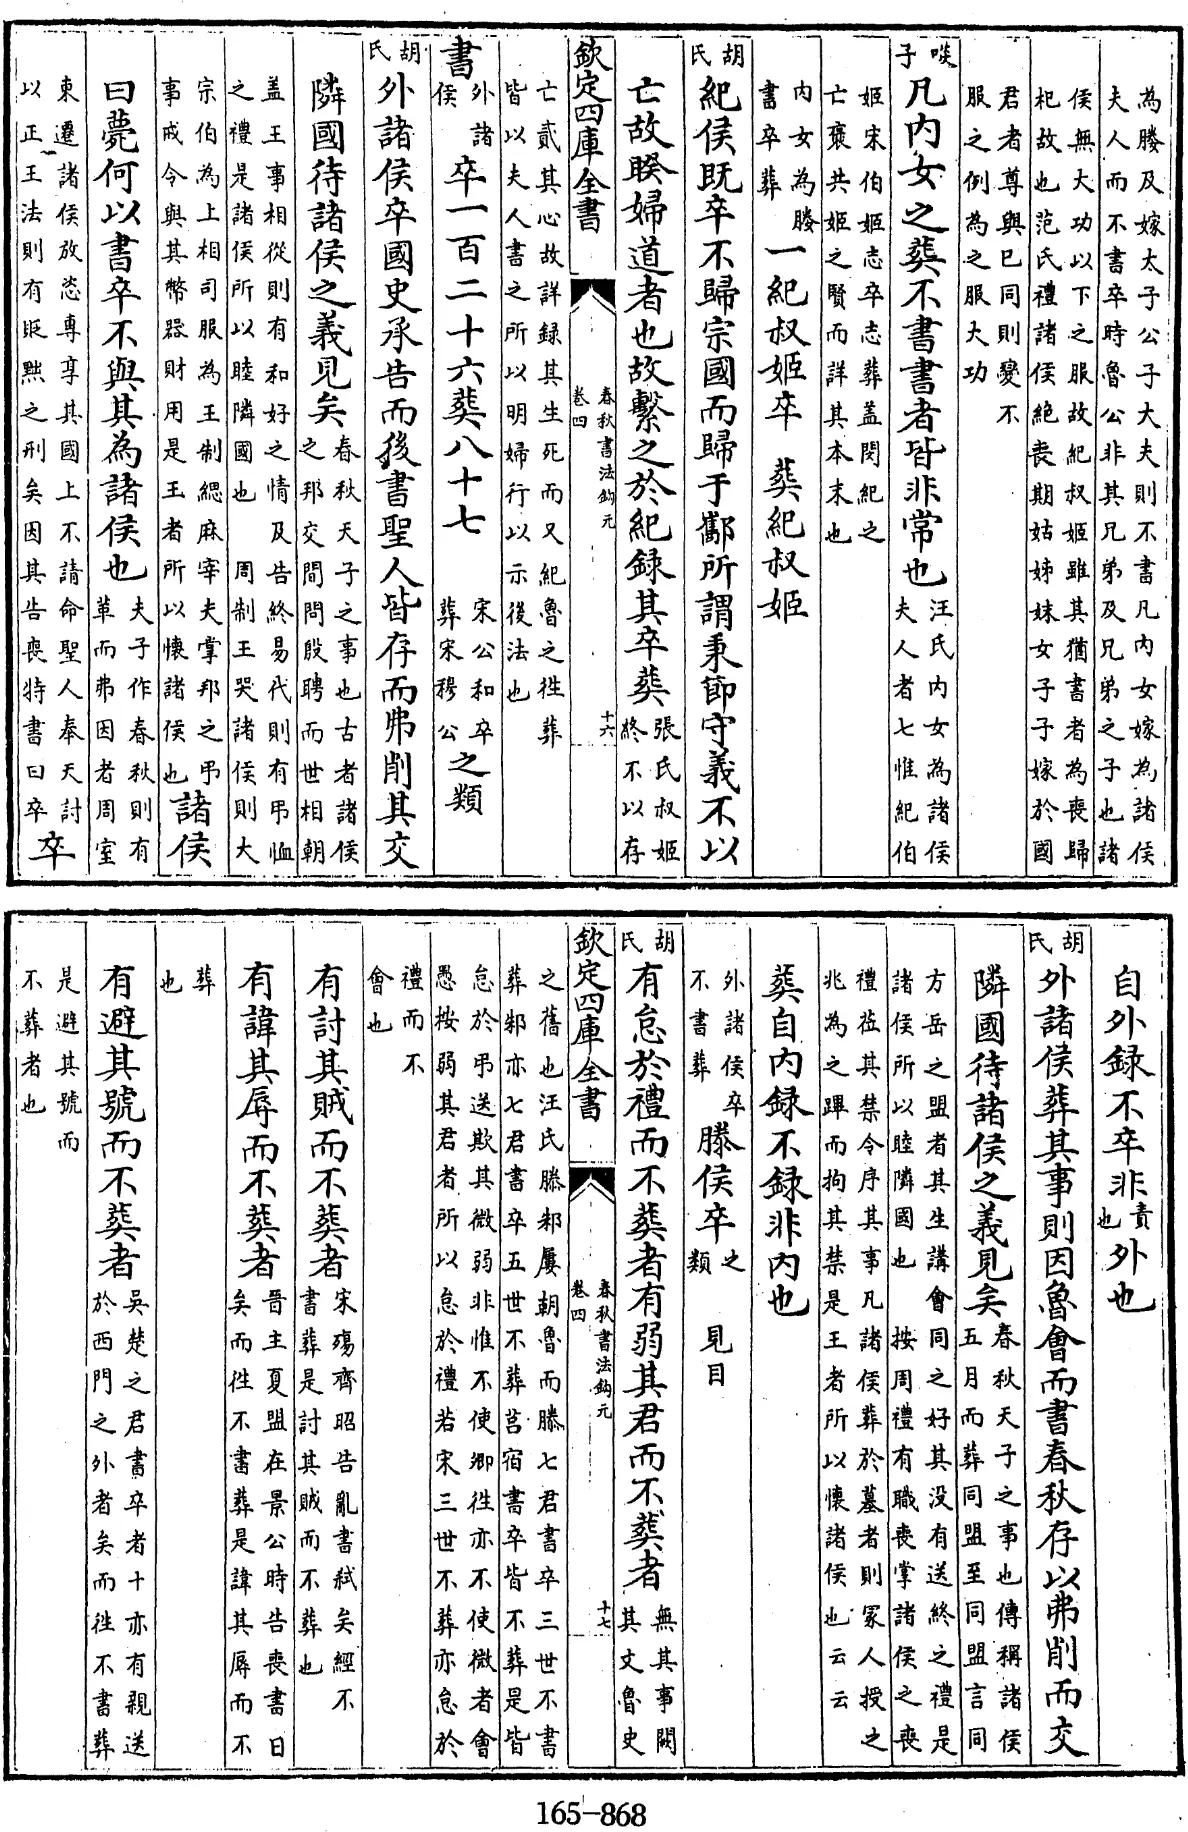 為媵及嫁太子公子大夫則不書凡内女嫁為諸侯
夫人而不書卒時魯公非其兄弟及兄弟之子也諸
侯無大功以下之服故紀叔姬雖其猶書者為喪歸
杞故也范氏禮諸侯絶喪期姑姊妹女子子嫁於國
君者尊與已同則變不
服之例為之服大功
啖子 凡内女之葬不書書者皆非常也汪氏内女為諸侯
夫人者七惟紀伯
姬宋伯姬志卒志葬盖閔紀之
亡褒共姬之賢而詳其本末也
内女為媵
書卒葬 一紀叔姬卒 葬紀叔姬
胡氏 紀侯既卒不歸宗國而歸于酅所謂秉節守義不以
亡故暌婦道者也故繫之於紀録其卒葬張氏叔姬
終不以存
欽定四庫全書
春秋書法鈎元
卷四
十六
亡貳其心故詳録其生死而又紀魯之徃葬
皆以夫人書之所以明婦行以示後法也
書外諸侯卒一百二十六葬八十七 宋公和卒
葬宋穆公之類
胡氏 外諸侯卒國史承告而後書聖人皆存而弗削其交
隣國待諸侯之義見矣春秋天子之事也古者諸侯
之邦交間問殷聘而世相朝
盖王事相從則有和好之情及告終易代則有弔恤
之禮是諸侯所以睦隣國也 周制王哭諸侯則大
宗伯為上相司服為王制緦麻宰夫掌邦之弔
事戒令與其幣器財用是王者所以懷諸侯也諸侯
曰薨何以書卒不與其為諸侯也夫子作春秋則有
革而弗因者周室
東遷諸侯放恣専享其國上不請命聖人奉天討
以正王法則有貶黜之刑矣因其告喪特書曰卒卒
自外録不卒非責也外也
胡氏 外諸侯葬其事則因魯會而書春秋存以弗削而交
隣國待諸侯之義見矣春秋天子之事也傳稱諸侯
五月而葬同盟至同盟言同
方岳之盟者其生講會同之好其没有送終之禮是
諸侯所以睦隣國也 按周禮有職喪掌諸侯之喪
禮莅其禁令序其事凡諸侯葬於墓者則冢人授之
兆為之蹕而拘其禁是王者所以懷諸侯也云云
葬自内録不録非内也
外諸侯卒
不書葬 滕侯卒之類 見目
胡氏 有怠於禮而不葬者有弱其君而不葬者無其事闕
其文魯史
欽定四庫全書
春秋書法鈎元
卷四
十七
之舊也汪氏滕邾屢朝魯而滕七君書卒三世不書
葬邾亦七君書卒五世不葬莒宿書卒皆不葬是皆
怠於弔送欺其微弱非惟不使卿徃亦不使微者會
愚按弱其君者所以怠於禮若宋三世不葬亦怠於
禮而不
會也
有討其賊而不葬者宋殤齊昭告亂書弑矣經不
書葬是討其賊而不葬也
有諱其辱而不葬者晉主夏盟在景公時告喪書日
矣而徃不書葬是諱其辱而不
葬
也
有避其號而不葬者吳楚之君書卒者十亦有親送
於西門之外者矣而徃不書葬
是避其號而
不葬者也
165-868